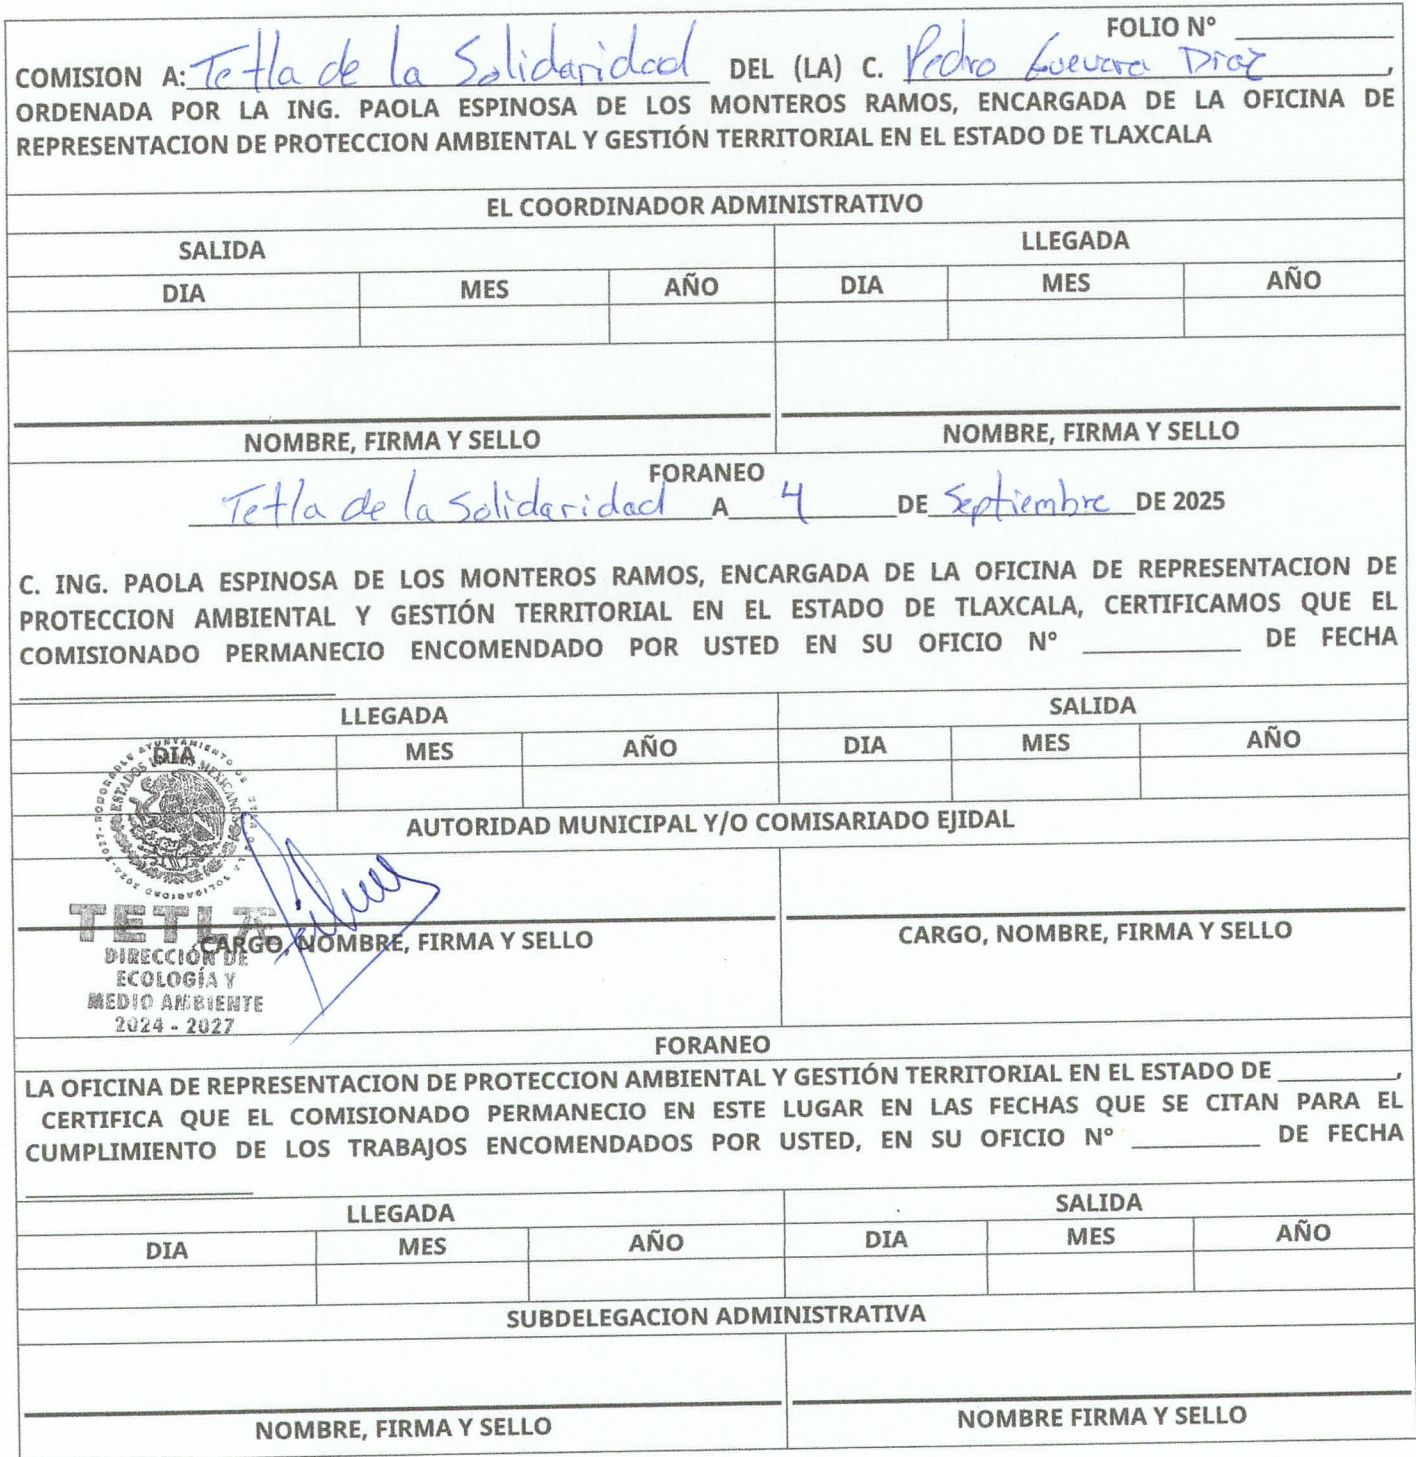 FOLIO N° ____________
COMISION A: Tetla de la Solidaridad DEL (LA) C. Pedro Guevara Diaz,
ORDENADA POR LA ING. PAOLA ESPINOSA DE LOS MONTEROS RAMOS, ENCARGADA DE LA OFICINA DE
REPRESENTACION DE PROTECCION AMBIENTAL Y GESTIÓN TERRITORIAL EN EL ESTADO DE TLAXCALA
EL COORDINADOR ADMINISTRATIVO
SALIDA LLEGADA
DIA MES AÑO DIA MES AÑO
NOMBRE, FIRMA Y SELLO NOMBRE, FIRMA Y SELLO
FORANEO
Tetla de la Solidaridad A 4 DE Septiembre DE 2025
C. ING. PAOLA ESPINOSA DE LOS MONTEROS RAMOS, ENCARGADA DE LA OFICINA DE REPRESENTACION DE
PROTECCION AMBIENTAL Y GESTIÓN TERRITORIAL EN EL ESTADO DE TLAXCALA, CERTIFICAMOS QUE EL
COMISIONADO PERMANECIO ENCOMENDADO POR USTED EN SU OFICIO N° ____________ DE FECHA
____________
LLEGADA SALIDA
DIA MES AÑO DIA MES AÑO
HONORABLE AYUNTAMIENTO DE TETLA DE LA SOLIDARIDAD 2024-2027
ESTADOS UNIDOS MEXICANOS
AUTORIDAD MUNICIPAL Y/O COMISARIADO EJIDAL
TETLA
CARGO, NOMBRE, FIRMA Y SELLO CARGO, NOMBRE, FIRMA Y SELLO
DIRECCIÓN DE
ECOLOGÍA Y
MEDIO AMBIENTE
2024 - 2027
FORANEO
LA OFICINA DE REPRESENTACION DE PROTECCION AMBIENTAL Y GESTIÓN TERRITORIAL EN EL ESTADO DE _________,
CERTIFICA QUE EL COMISIONADO PERMANECIO EN ESTE LUGAR EN LAS FECHAS QUE SE CITAN PARA EL
CUMPLIMIENTO DE LOS TRABAJOS ENCOMENDADOS POR USTED, EN SU OFICIO N° __________ DE FECHA
____________
LLEGADA SALIDA
DIA MES AÑO DIA MES AÑO
SUBDELEGACION ADMINISTRATIVA
NOMBRE, FIRMA Y SELLO NOMBRE FIRMA Y SELLO